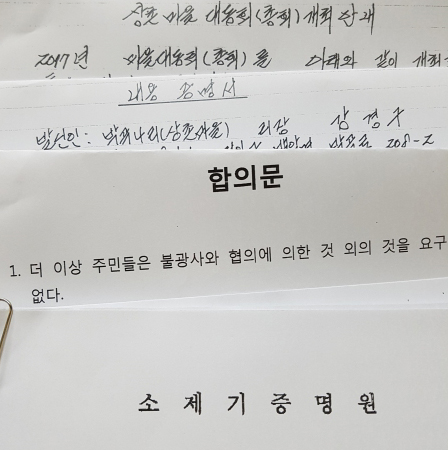 마을 대동회(총회) 개최
2017년 마을대동회(총회)를 아래와 같이 개최
내용증명서
발신인: 이장
합의문
1. 더 이상 주민들은 불광사와 협의에 의한 것 외의 것을 요구
없다.
소 제 기 증 명 원